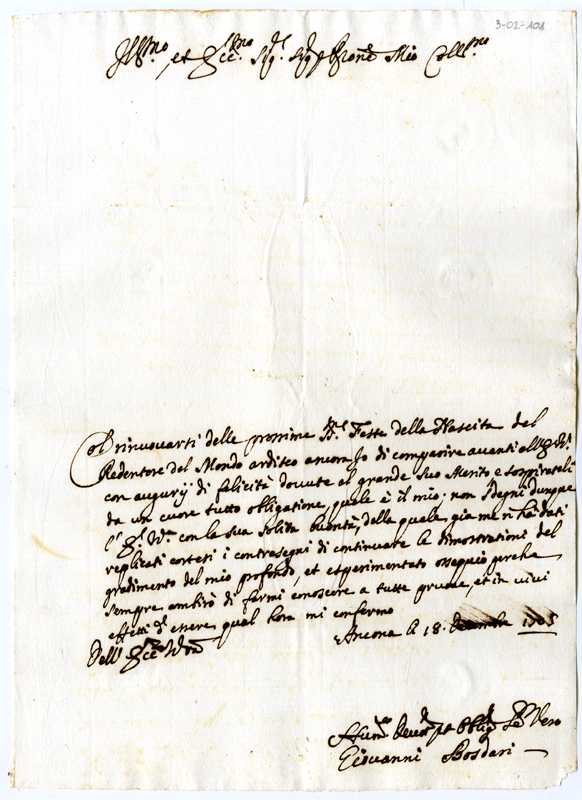 3-02-101
Ill.mo et Ecc.mo Sig.r Sig.r Pron.e Mio Coll.mo
Col rinuouarti delle prossime S.me Feste della Nascita del
Redentore del Mondo ardisco ancora Io di comparire auanti all'E. V.
con augurij di felicità douute al grande Suo Merito e sospirateli
da un cuore tutto obligatione, quale è il mio. non sdegni dunque
l'E. V.ra con la sua solita bontà, della quale gia me n'ha dati
replicati cortesi i contrasegni di continuare le dimostrationi del
gradimento del mio profondo, et esperimentato ossequio perche
sempre ambirò di farmi conoscere a tutte proue, et in viui
effetti d'essere qual hora mi confermo
Ancona li 18. Dicembre
Dell' Ecc.za V.ra
Hum.mo Deuot.mo et Oblig.mo Ser. Vero
Giouanni Bosdari